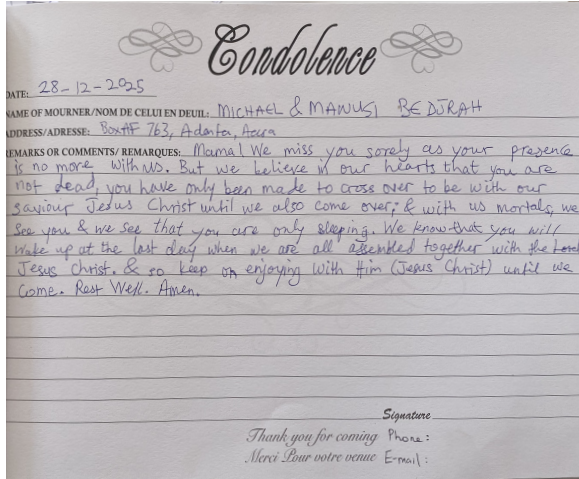 Condolence
DATE: 28-12-2025
NAME OF MOURNER/NOM DE CELUI EN DEUIL: MICHAEL & MANUSI BEDJRAH
ADDRESS/ADRESSE: Box AF 763, Adenta, Accra
REMARKS OR COMMENTS/ REMARQUES: Mama! We miss you sorely as your presence
is no more with us. But we believe in our hearts that you are
not dead, you have only been made to cross over to be with our
saviour Jesus Christ until we also come over; & with us mortals, we
see you & we see that you are only sleeping. We know that you will
wake up at the last day when we are all assembled together with the Lord
Jesus Christ. & so keep on enjoying with Him (Jesus Christ) until we
come. Rest Well. Amen.
Signature
Thank you for coming Phone:
Merci Pour votre venue E-mail: